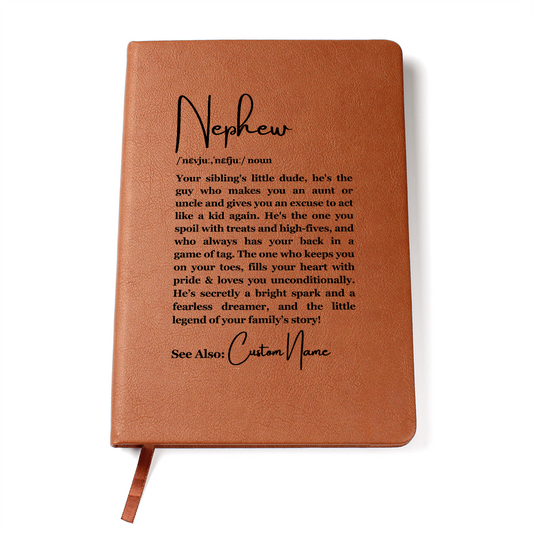 Nephew
/ˈnɛvjuː,ˈnɛfjuː/ noun
Your sibling's little dude, he's the
guy who makes you an aunt or
uncle and gives you an excuse to act
like a kid again. He's the one you
spoil with treats and high-fives, and
who always has your back in a
game of tag. The one who keeps you
on your toes, fills your heart with
pride & loves you unconditionally.
He's secretly a bright spark and a
fearless dreamer, and the little
legend of your family's story!
See Also: Custom Name